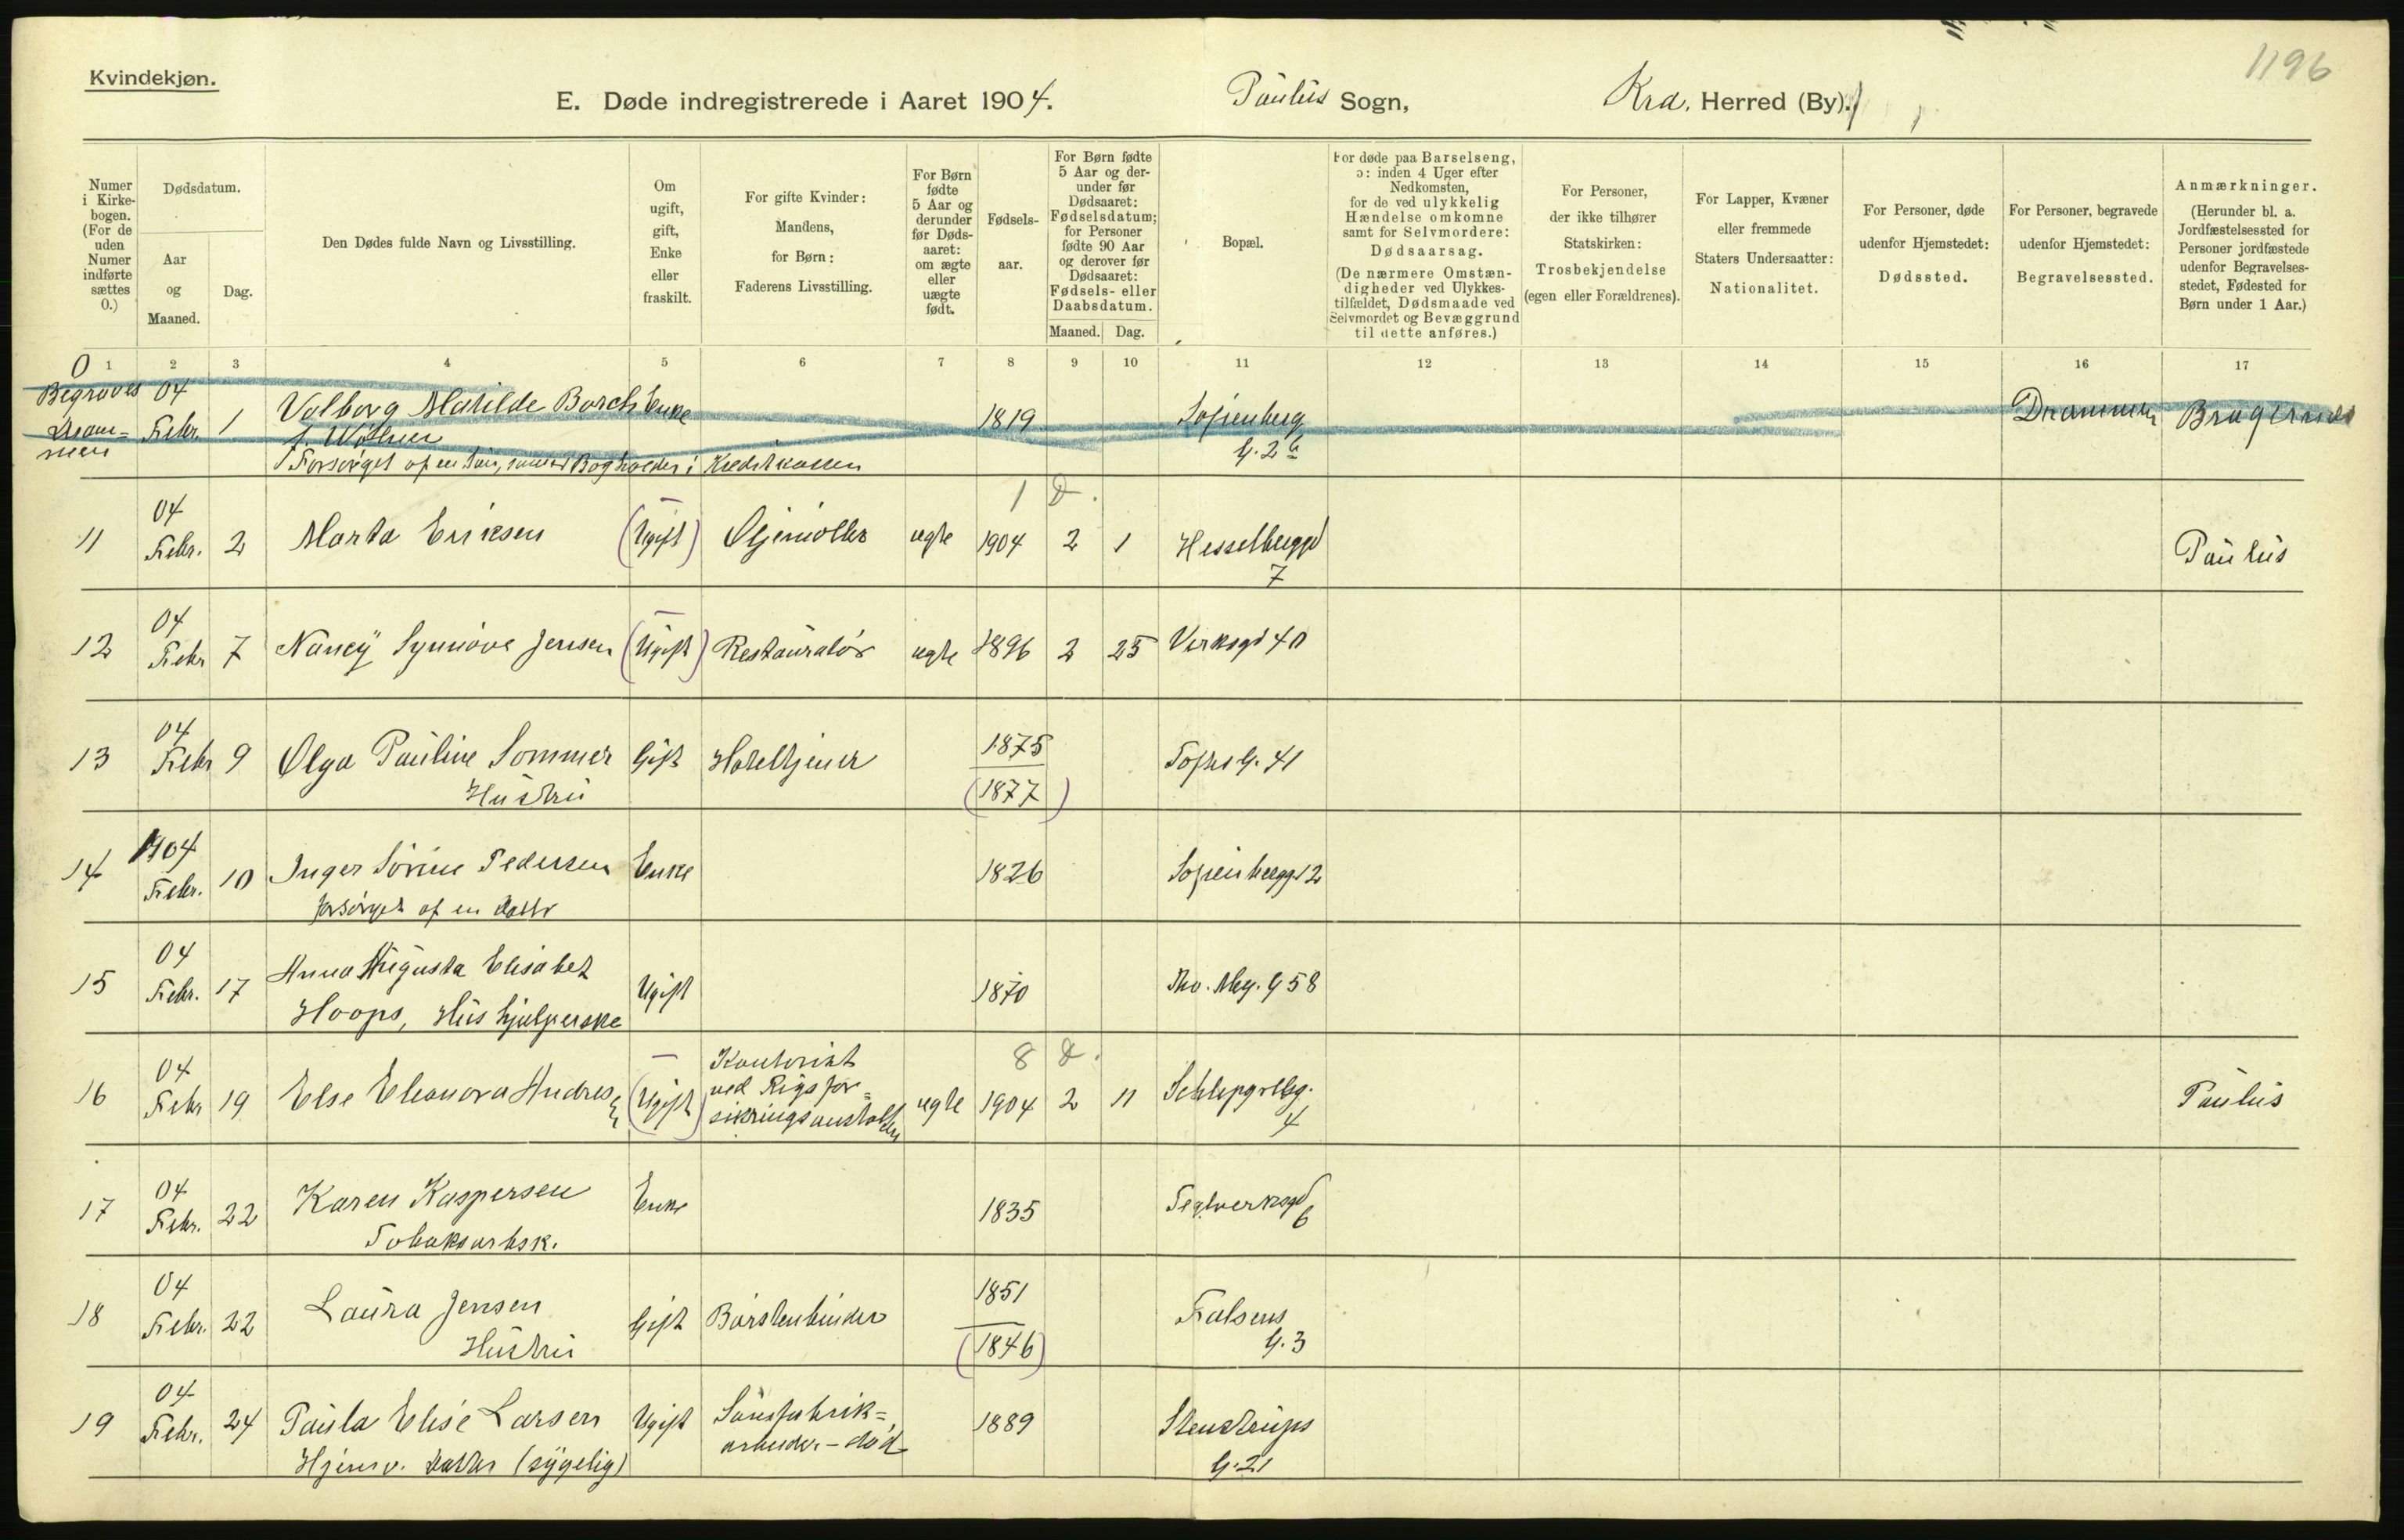 1196
Kvindekjøn.
E. Døde indregistrerede i Aaret 1904. Paulus Sogn, Kra. Herred (By).
Numer i Kirke-bogen. (For de uden Numer indførte sættes 0.)
Dødsdatum.
Aar og Maaned.
Dag.
Den Dødes fulde Navn og Livsstilling.
Om ugift, gift, Enke eller fraskilt.
For gifte Kvinder: Mandens, for Børn: Faderens Livsstilling.
For Børn fødte 5 Aar og derunder før Døds-aaret: om ægte eller uægte født.
Fødsels-aar.
For Børn fødte 5 Aar og der-under før Dødsaaret: Fødselsdatum; for Personer fødte 90 Aar og derover før Dødsaaret: Fødsels- eller Daabsdatum.
Maaned. Dag.
Bopæl.
For døde paa Barselseng, ɔ: inden 4 Uger efter Nedkomsten, for de ved ulykkelig Hændelse omkomne samt for Selvmordere: Dødsaarsag. (De nærmere Omstæn-digheder ved Ulykkes-tilfældet, Dødsmaade ved Selvmordet og Bevæggrund til dette anføres.)
For Personer, der ikke tilhører Statskirken: Trosbekjendelse (egen eller Forældrenes).
For Lapper, Kvæner eller fremmede Staters Undersaatter: Nationalitet.
For Personer, døde udenfor Hjemstedet: Dødssted.
For Personer, begravede udenfor Hjemstedet: Begravelsessted.
Anmærkninger. (Herunder bl. a. Jordfæstelsessted for Personer jordfæstede udenfor Begravelses-stedet, Fødested for Børn under 1 Aar.)
1 2 3 4 5 6 7 8 9 10 11 12 13 14 15 16 17
0 Begraves Drammen 04 Febr. 1 Valborg Matilde Borch Enke 1819 Sofienberg Drammen Bragernes
f. Wølner
Forsørget af en Søn, Bogholder i Kreditkassen G. 2 b
1 D.
11 04 Febr. 2 Marta Eriksen (Ugift) Øljemøller ægte 1904 2 1 Hesselberggd 7 Paulus
12 04 Febr 7 Nancy Synnöve Jensen (Ugift) Restauratør ægte 1896 2 25 Verksgd 40
13 04 Febr 9 Olga Pauline Sommer Gift Hoteltjener 1875 Toftes G. 41
Hustru (1877)
14 1904 Febr. 10 Inger Sörine Pedersen Enke 1826 Sofienbergg. 12
forsörget af en datter
15 04 Febr. 17 Anna Augusta Elisabet Ugift 1870 Tho. Meg. G 58
Hoops, Hushjælperske
8 D.
16 04 Febr 19 Else Eleonora Andresen (Ugift) Kontorist ved Rigsfor=sikringsanstalten ægte 1904 2 11 Schleppgrellsg. 4 Paulus
17 04 Febr. 22 Karen Kaspersen Enke 1835 Teglverksgd 6
Tobaksarbsk.
18 04 Febr. 22 Laura Jensen Gift Börstenbinder 1851 Falsens G. 3
Hustru (1846)
19 04 Febr. 24 Paula Elise Larsen Ugift Sömfabrik=arbeider - död 1889 Stenstrups G. 21
Hjemv. datter (sygelig)